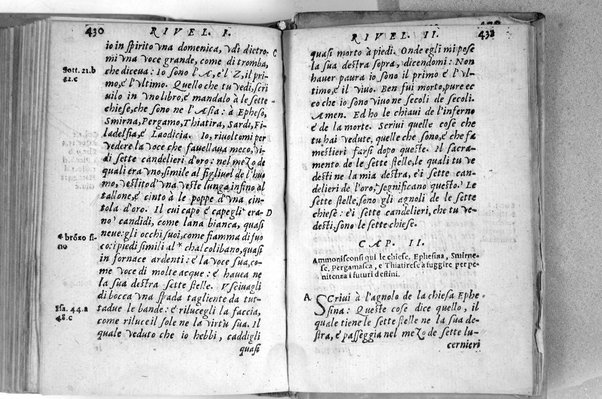 430 RIVEL. I.
io in spirito vna domenica, vdi dietro
mi vna voce grande, come di tromba,
che diceua: Io sono l'A, e'l Z, il pri-
mo, è l'vltimo. Quello che tu vedi, scri
uilo in vno libro, è mandalo à le sette
chiese, che sono ne l'Asia: à Epheso,
Smirna, Pergamo, Thiatira, Sardi, Fi-
ladelfia, è Laodicia. Io, riuoltomi per
vedere la voce che fauellaua meco, vi-
di sette candelieri d'oro: nel mezo de
quali era vno, simile al figliuol de l'huo
mo, vestito d'vna veste lunga infino al
tallone, è cinto à le poppe d'vna cin-
tola d'oro. Il cui capo è capegli era-
no candidi, come lana bianca, quasi
neue: gli occhi suoi, come fiamma di fuo
co: i piedi simili al * chalcolibano, quasi
in fornace ardenti: è la voce sua, co-
me voce di molte acque: è hauea ne
la sua destra sette stelle. Vsciuagli
di bocca vna spada tagliente da tut-
tadue le bande: è rilucegli la faccia,
come riluce il sole ne la virtù sua. Il
quale veduto che io hebbi, caddigli
quasi
C
D
Iott. 21.b
42.c
* brōzo fi
no
Isa. 44.a
48.c
RIVEL. II. 432
quasi morto à piedi. Onde egli mi pose
la sua destra sopra, dicendomi: Non
hauer paura io sono il primo è l'vl-
timo, è il viuo. Ben fui morto, pure ec
co che io sono viuo ne secoli de secoli.
Amen. Ed ho le chiaui de l'inferno
è de la morte. Scriui quelle cose che
tu hai vedute, quelle che sono, è che fa
mestieri farsi dopo queste. Il sacra-
mento de le sette stelle, le quali tu ve
desti ne la mia destra, è i sette can-
delieri de l'oro, significano questo: Le
sette stelle, sono gli agnoli de le sette
chiese: è i sette candelieri, che tu ve-
desti, sono le sette chiese.
CAP. II.
Ammonisconsi qui le chiese, Ephesina, Smirne-
se, Pergamasca, e Thiatiresca fuggire per pe-
nitenza i futuri destini.
A Scriui à l'agnolo de la chiesa Ephe
sina: Queste cose dice quello, il
quale tiene le sette stelle ne la sua de-
stra, è passeggia nel mezo de sette lu-
cernieri